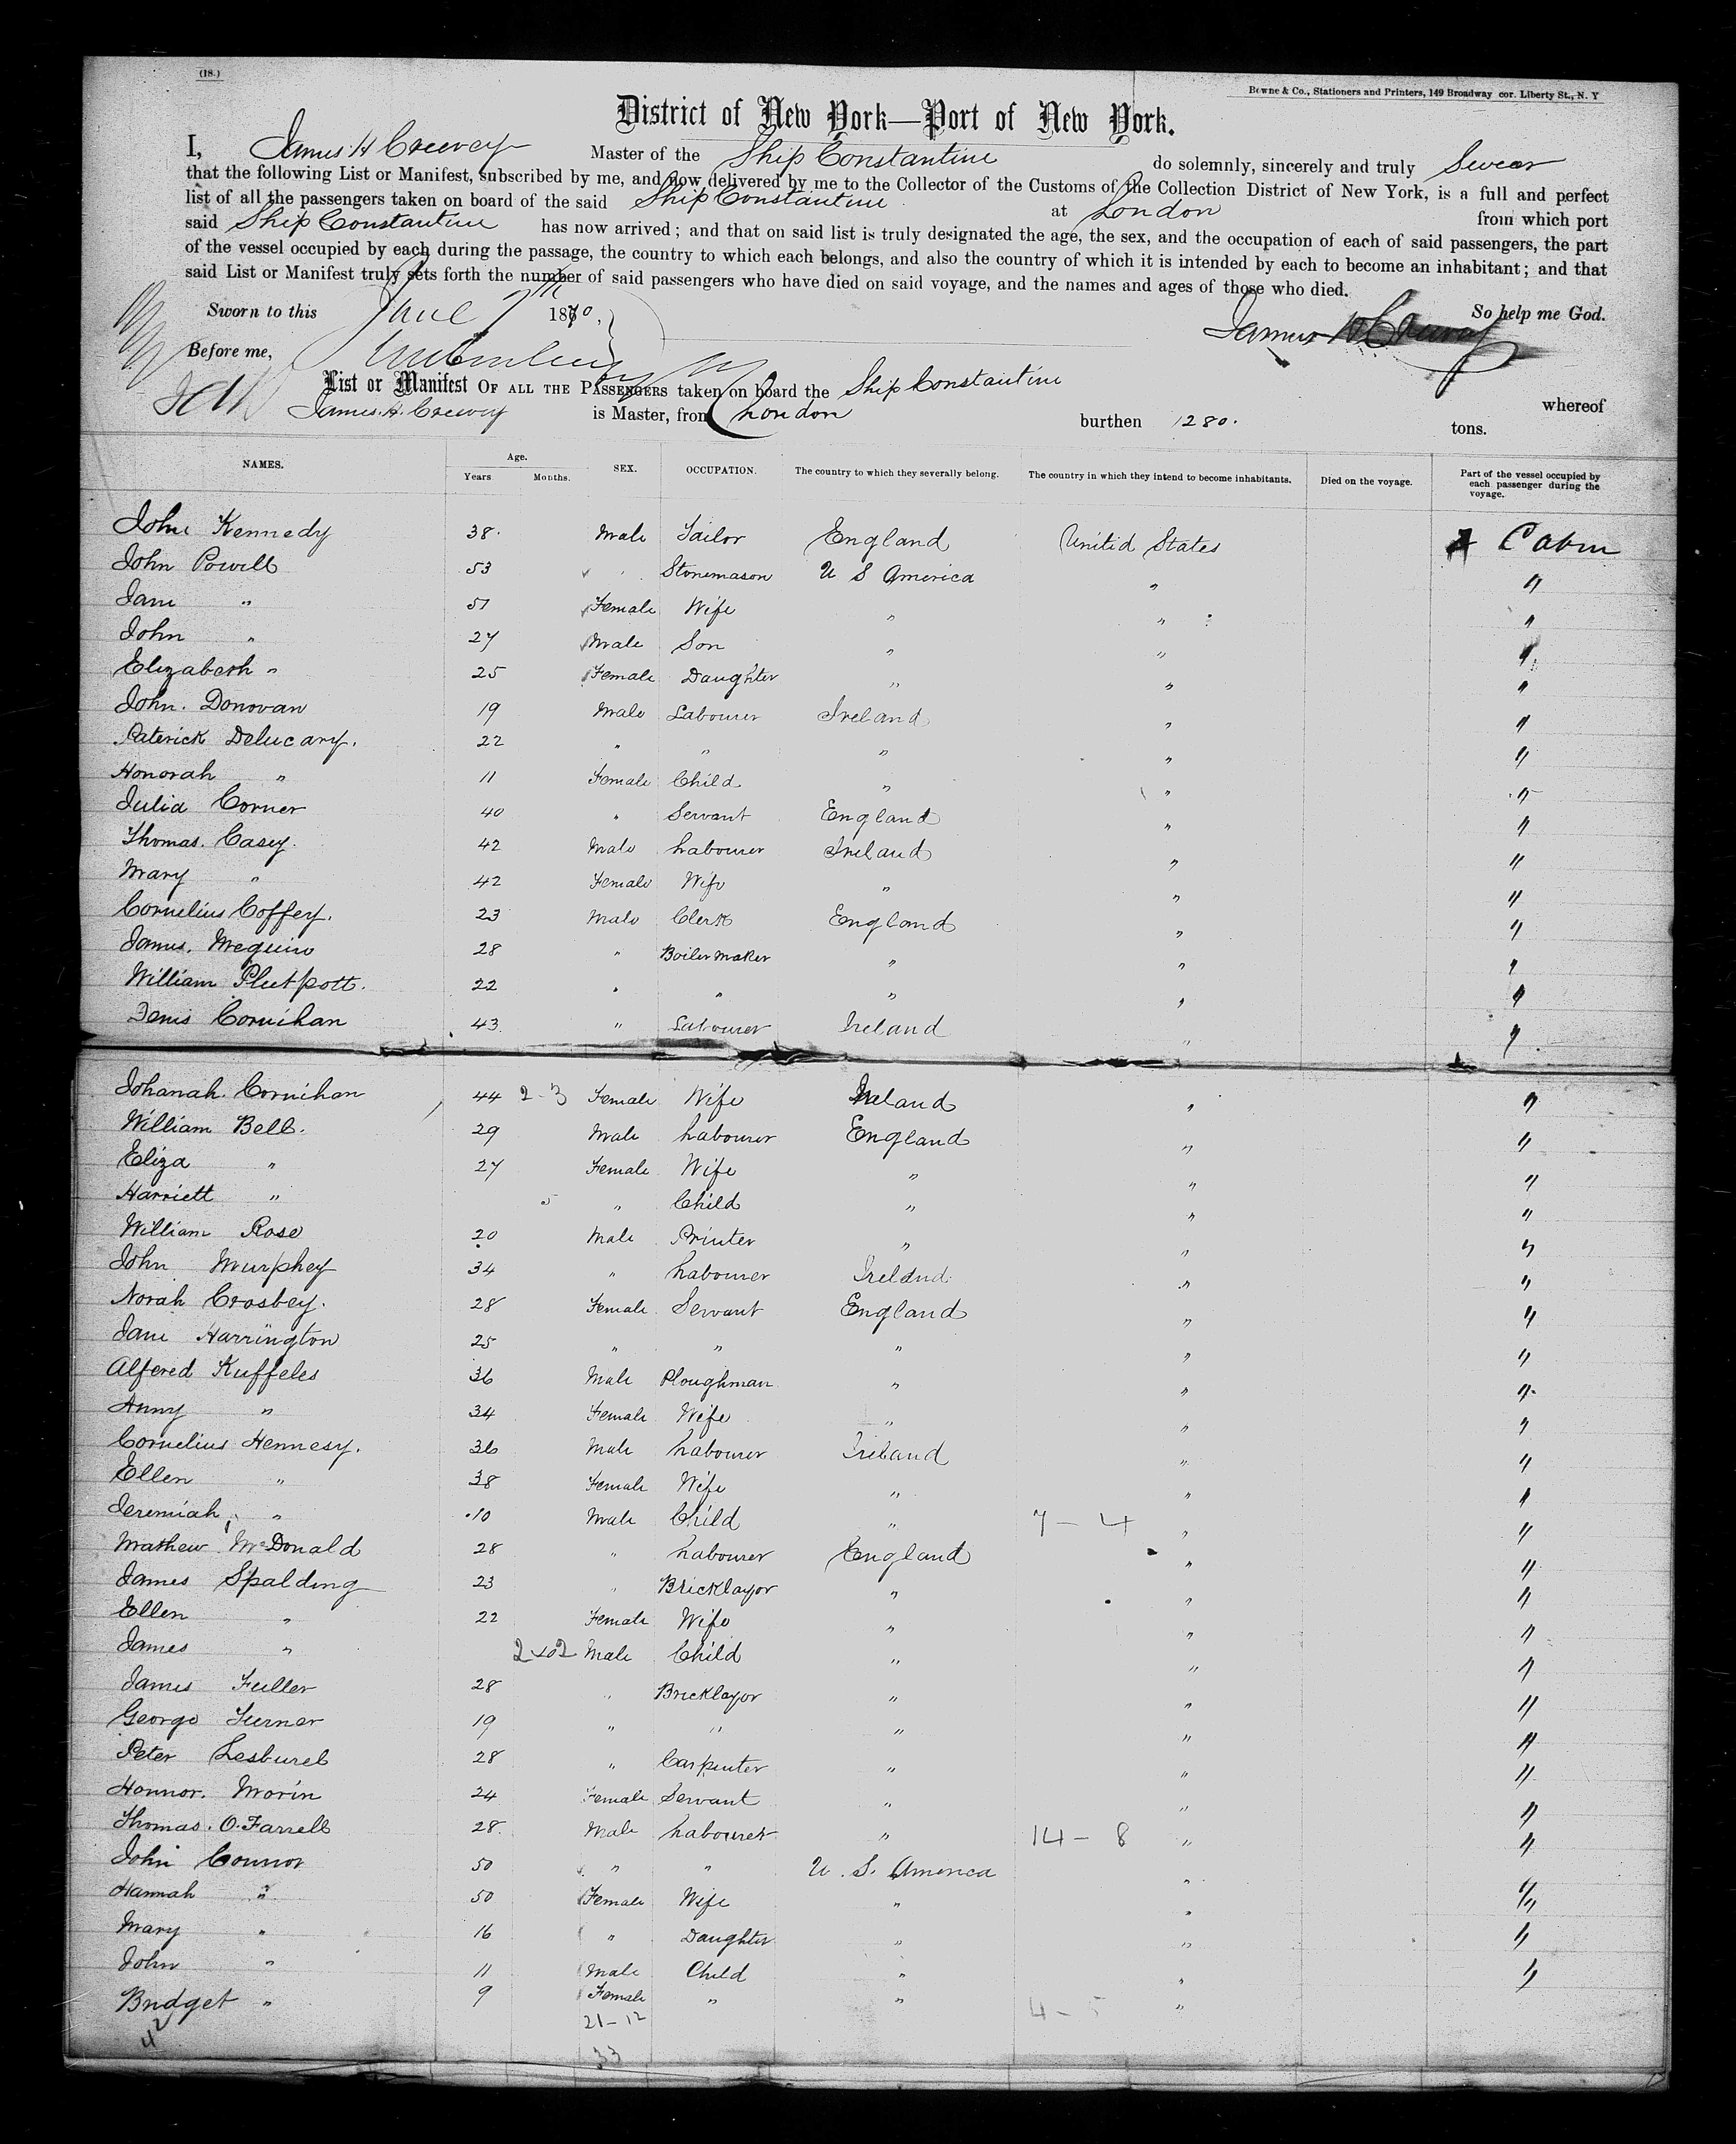 (18.)
Bowne & Co., Stationers and Printers, 149 Broadway cor. Liberty St., N. Y
District of New York—Port of New York.
I, James H Creevey Master of the Ship Constantine do solemnly, sincerely and truly Swear
that the following List or Manifest, subscribed by me, and now delivered by me to the Collector of the Customs of the Collection District of New York, is a full and perfect
list of all the passengers taken on board of the said Ship Constantine at London from which port
said Ship Constantine has now arrived; and that on said list is truly designated the age, the sex, and the occupation of each of said passengers, the part
of the vessel occupied by each during the passage, the country to which each belongs, and also the country of which it is intended by each to become an inhabitant; and that
said List or Manifest truly sets forth the number of said passengers who have died on said voyage, and the names and ages of those who died.
Sworn to this June 7th 1870. So help me God.
Before me, James H Creevey
List or Manifest OF ALL THE PASSENGERS taken on board the Ship Constantine whereof
James. H. Creevey is Master, from London burthen 1280. tons.
NAMES. Age. Years Months. SEX. OCCUPATION. The country to which they severally belong. The country in which they intend to become inhabitants. Died on the voyage. Part of the vessel occupied by each passenger during the voyage.
John Kennedy 38. Male Tailor England United States Cabin
John Powell 53 " Stonemason U S America " "
Jane " 51 Female Wife " " "
John " 27 Male Son " " "
Elizabeth " 25 Female Daughter " " "
John. Donovan 19 Male Labourer Ireland " "
Paterick Delucary. 22 " " " " "
Honorah " 11 Female Child " " "
Julia Corner 40 " Servant England " "
Thomas. Casey. 42 Male Labourer Ireland " "
Mary " 42 Female Wife " " "
Cornelius Coffey. 23 Male Clerk England " "
James. Meguiro 28 " Boiler maker " " "
William Pluetpott. 22 " " " " "
Denis Cornihan 43. " Labourer Ireland " "
Johanah. Cornihan 44 2-3 Female Wife Ireland " "
William Bell. 29 Male Labourer England " "
Eliza " 27 Female Wife " " "
Harriett " 5 " Child " " "
William Rose 20 Male Printer " " "
John Murphey 34 " Labourer Ireland " "
Norah Crosbey. 28 Female Servant England " "
Jane Harrington 25 " " " " "
Alfered Kuffeles 36 Male Ploughman " " "
Anny " 34 Female Wife " " "
Cornelius Hennesy. 36 Male Labourer Ireland " "
Ellen " 38 Female Wife " " "
Jeremiah " 10 Male Child " 7-4 " "
Mathew McDonald 28 " Labourer England " "
James Spalding 23 " Bricklayor " " "
Ellen " 22 Female Wife " " "
James " Male Child " " "
James Fuller 28 " Bricklayor " " "
George Turner 19 " " " " "
Peter Lesburel 28 " Carpenter " " "
Honnor. Morin 24 Female Servant " " "
Thomas. O.Farrell 28. Male Labourer " 14-8 " "
John Connor 50 " " U. S. America " "
Hannah " 50 Female Wife " " "
Mary " 16 " Daughter " " "
John " 11 Male Child " " "
Bridget " 9 Female " " 4-5 "
42 21-12
33